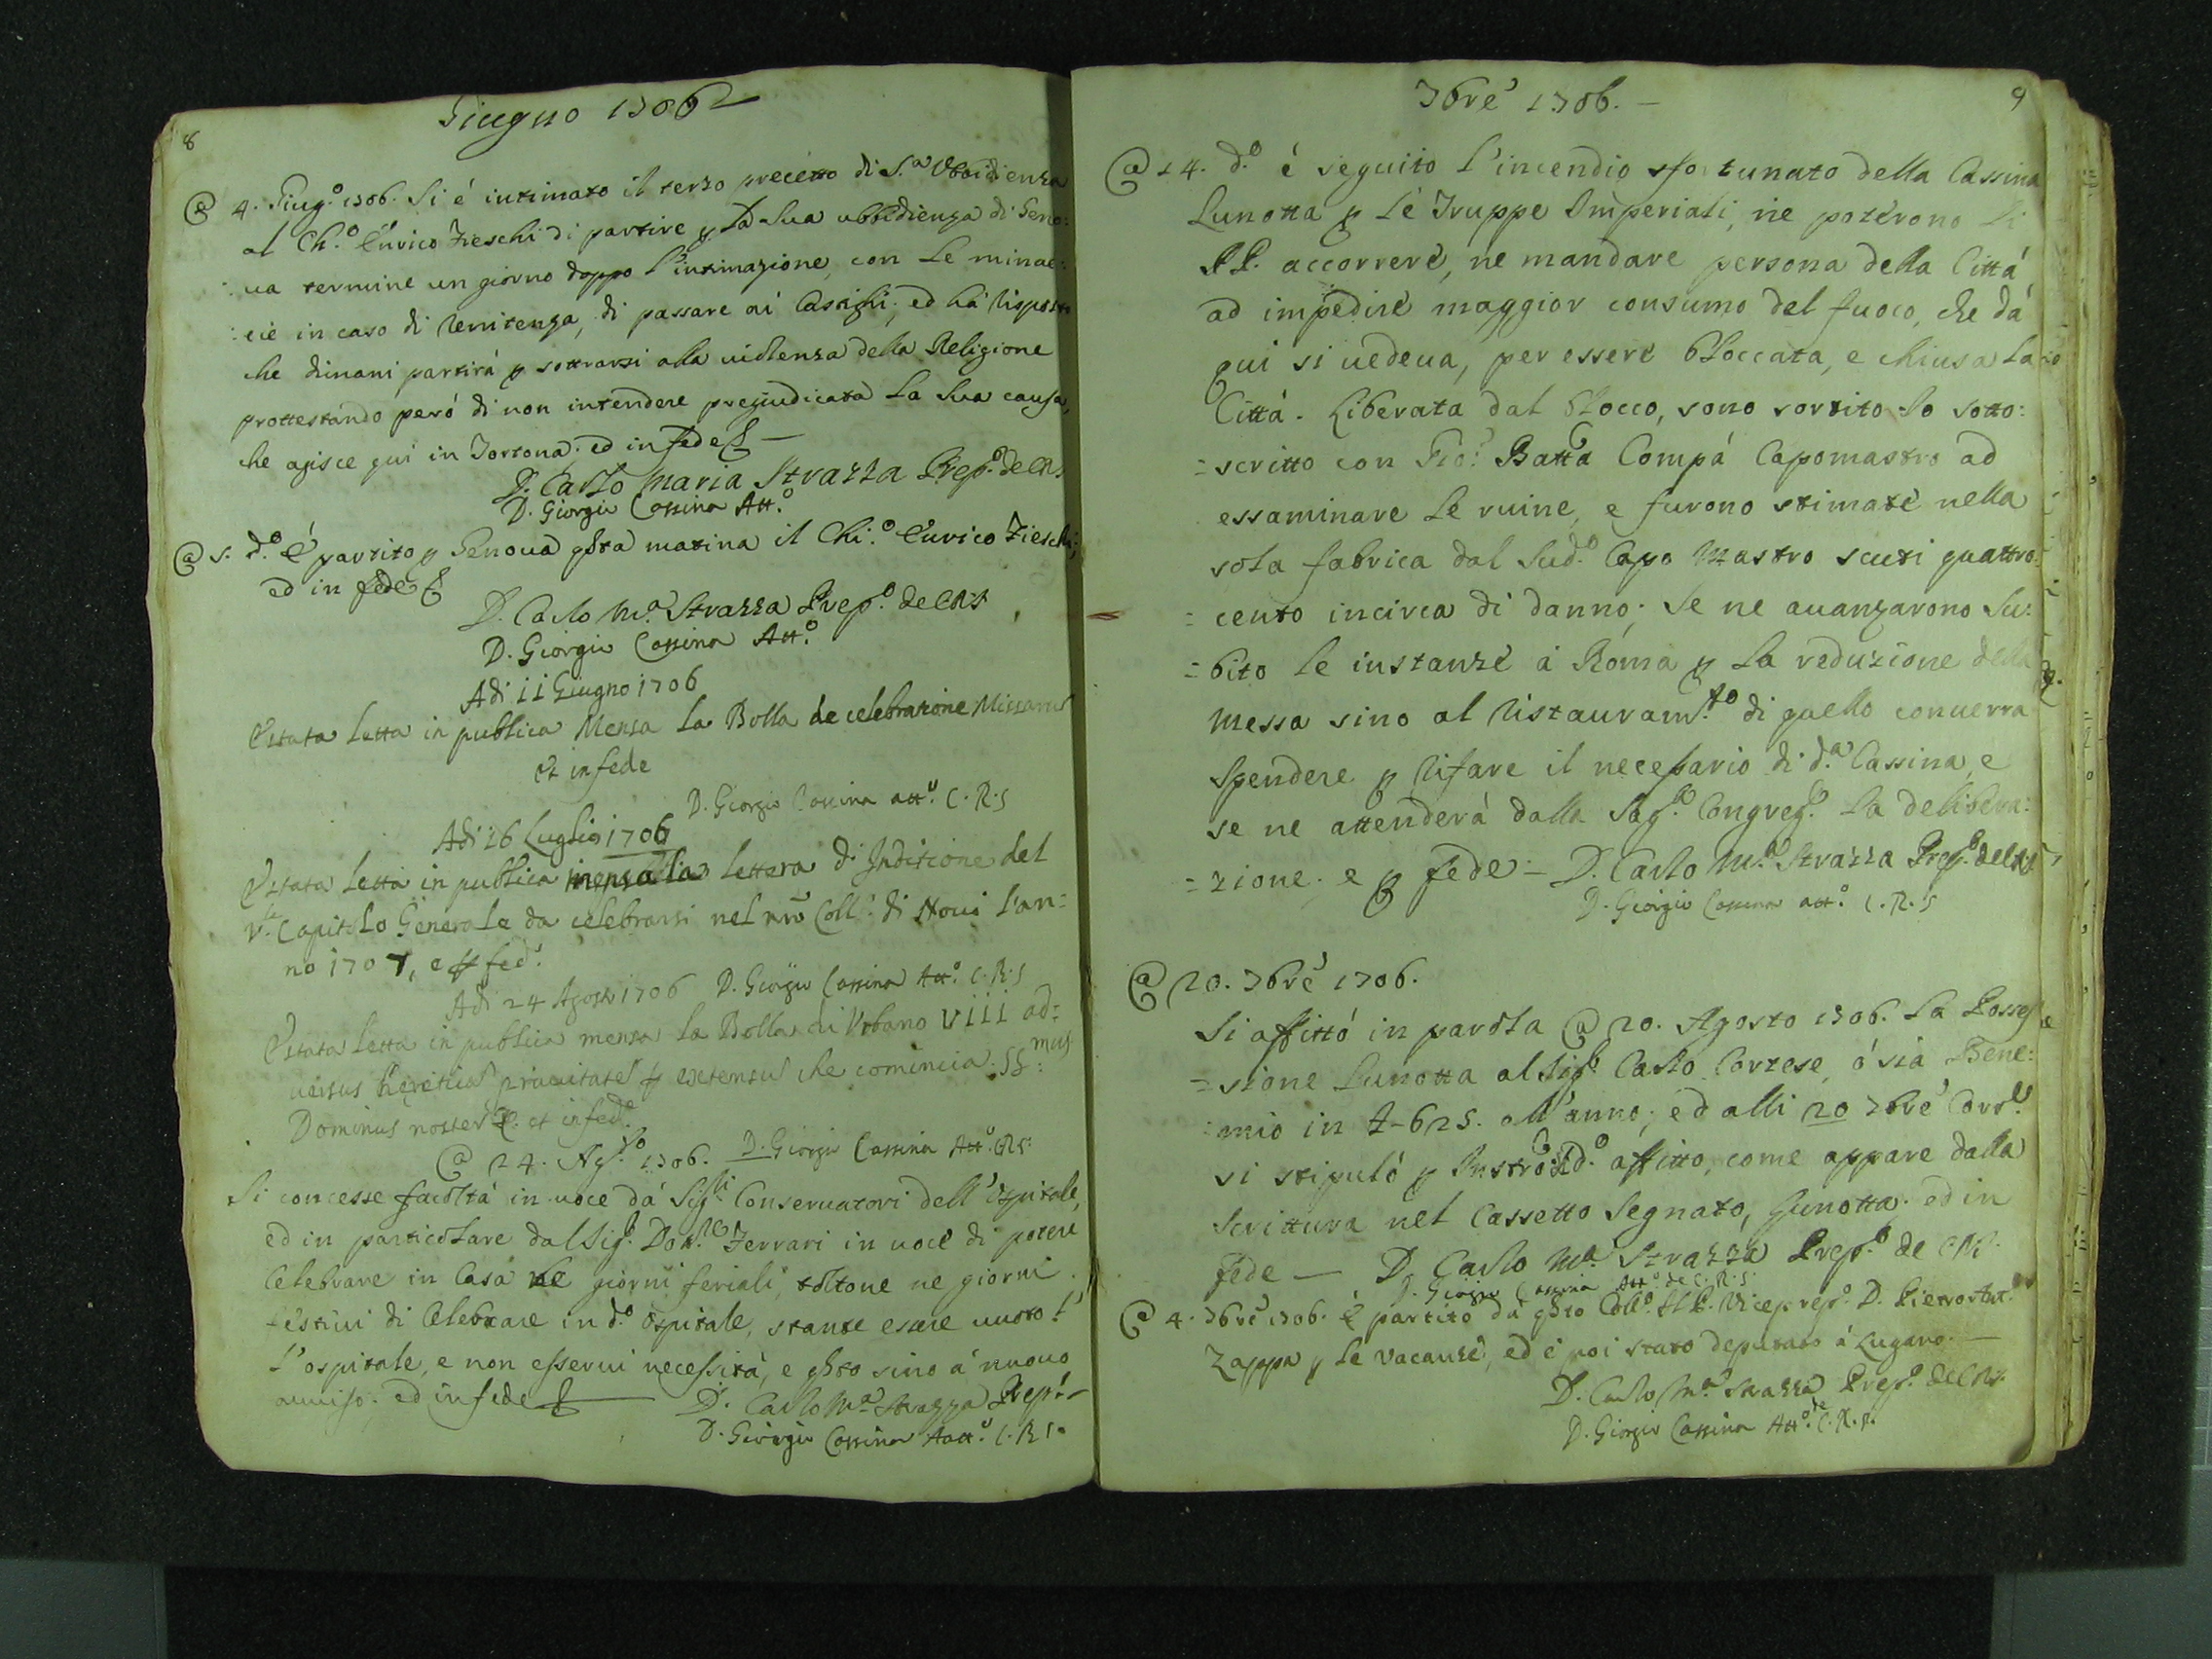 8
Giugno 1706
@ 4. Giug.o 1706. Si é intimato il terzo precetto di S.a Ubbidienza
al Ch.o Enrico Fieschi di partire p la sua ubbidienza di Geno:
:ua termine un giorno doppo l'intimazione, con le minac:
:cie in caso di renitenza, di passare ai Castighi; ed há risposto
che dimani partirá p sottrarsi alla uiolenza della Religione
prottestando peró di non intendere pregiudicata la sua causa,
che agisce qui in Tortona; ed in fede
D. Carlo Maria Strazza Prep.o de CRS
D. Giorgio Cassina Att.o
@ 5. d.o É partito p Genoua qsta matina il Chi.o Enrico Fieschi;
ed in fede
D. Carlo M.a Strazza Prep.o de CRS
D. Giorgio Cassina Att.o
Adi 11 Giugno 1706
É stata letta in publica Mensa la Bolla de celebratione Missarum
et in fede
D. Giorgio Cassina att.o C.R.S
Adi 16 Luglio 1706
É stata letta in publica mensa la lettera di Inditione del
V. Capitolo Generale da celebrarsi nel nro Coll.o di Noui l'an=
no 1707, e p fed.
Adi 24 Agosto 1706 D. Giorgio Cassina Att.o C.R.S
É stata letta in publica mensa la Bolla di Vrbano VIII ad=
uersus heretica prauitate p extensu che comincia: SS:mus
Dominus noster &. et in fed.
@ 24. Ag.to 1706. D. Giorgio Cassina Att.o CRS
Si concesse facoltá in uoce dá Sig.ri Conseruatori dell'Ospitale,
ed in particolare dal Sig.r Dom.co Ferrari in uoce di potere
Celebrare in Casa ne giorni feriali, toltone ne giorni
festiui di Celebrare in d.o Ospitale, stante essere uuoto l'
l'ospitale, e non esserui necessitá, e qsto sino á nuouo
auuiso; ed in fede
D. Carlo M.a Strazza Prep.to
D. Giorgio Cassina Att.o C.R.S.
9
7bré 1706.
@ 14. d.o é seguito l'incendio sfortunato della Cassina
Lunotta p lé Truppe Imperiali, ne potérono li
PP. accorrere, ne mandare persona della Cittá
ad impedire maggior consumo del fuoco, che dá
qui si uedeua, per essere bloccata, e chiusa la
Cittá. Liberata dal blocco, sono sortito Io sotto:
=scritto con Gio: Batta Compá Capomastro ad
essaminare le ruine, e furono stimate nella
sola fabrica dal Sud.o Capo Mastro scuti quattro:
=cento incirca di danno; Se ne auanzarono su:
=bito le instanze á Roma p la reduzione della
Messa sino al ristauram.to di quello conuerra
spendere p rifare il necessario di d.a Cassina, e
se ne attenderá dalla Sag.a Congreg.e la delibera:
=zione; e p fede – D. Carlo M.a Strazza Prep.o de CRS
D. Giorgio Cassina att.o C.R.S
@ 20. 7bré 1706.
Si affittó in parola @ 20. Agosto 1706. la Posses
=sione Lunotta al Sig.r Carlo Cortese, ó sia Bene:
:mio in £-625. all'anno; ed alli 20 7bré Corr.e
si stipuló p Instro d.o affitto, come appare dalla
Scrittura nel Cassetto segnato, Lunotta. ed in
fede — D. Carlo M.a Strazza Prep.o de CRS
D. Giorgio Cassina Att.o de C.R.S.
@ 4. 7bré 1706. É partito dá qsto Coll.o Il P. Viceprep.o D. Pietro Ant.o
Zappa p lé vacanze, ed é poi stato deputato á Lugano. —
D. Carlo M.a Strazza Prep.o de CRS.
D. Giorgio Cassina Att.o de C.R.S.